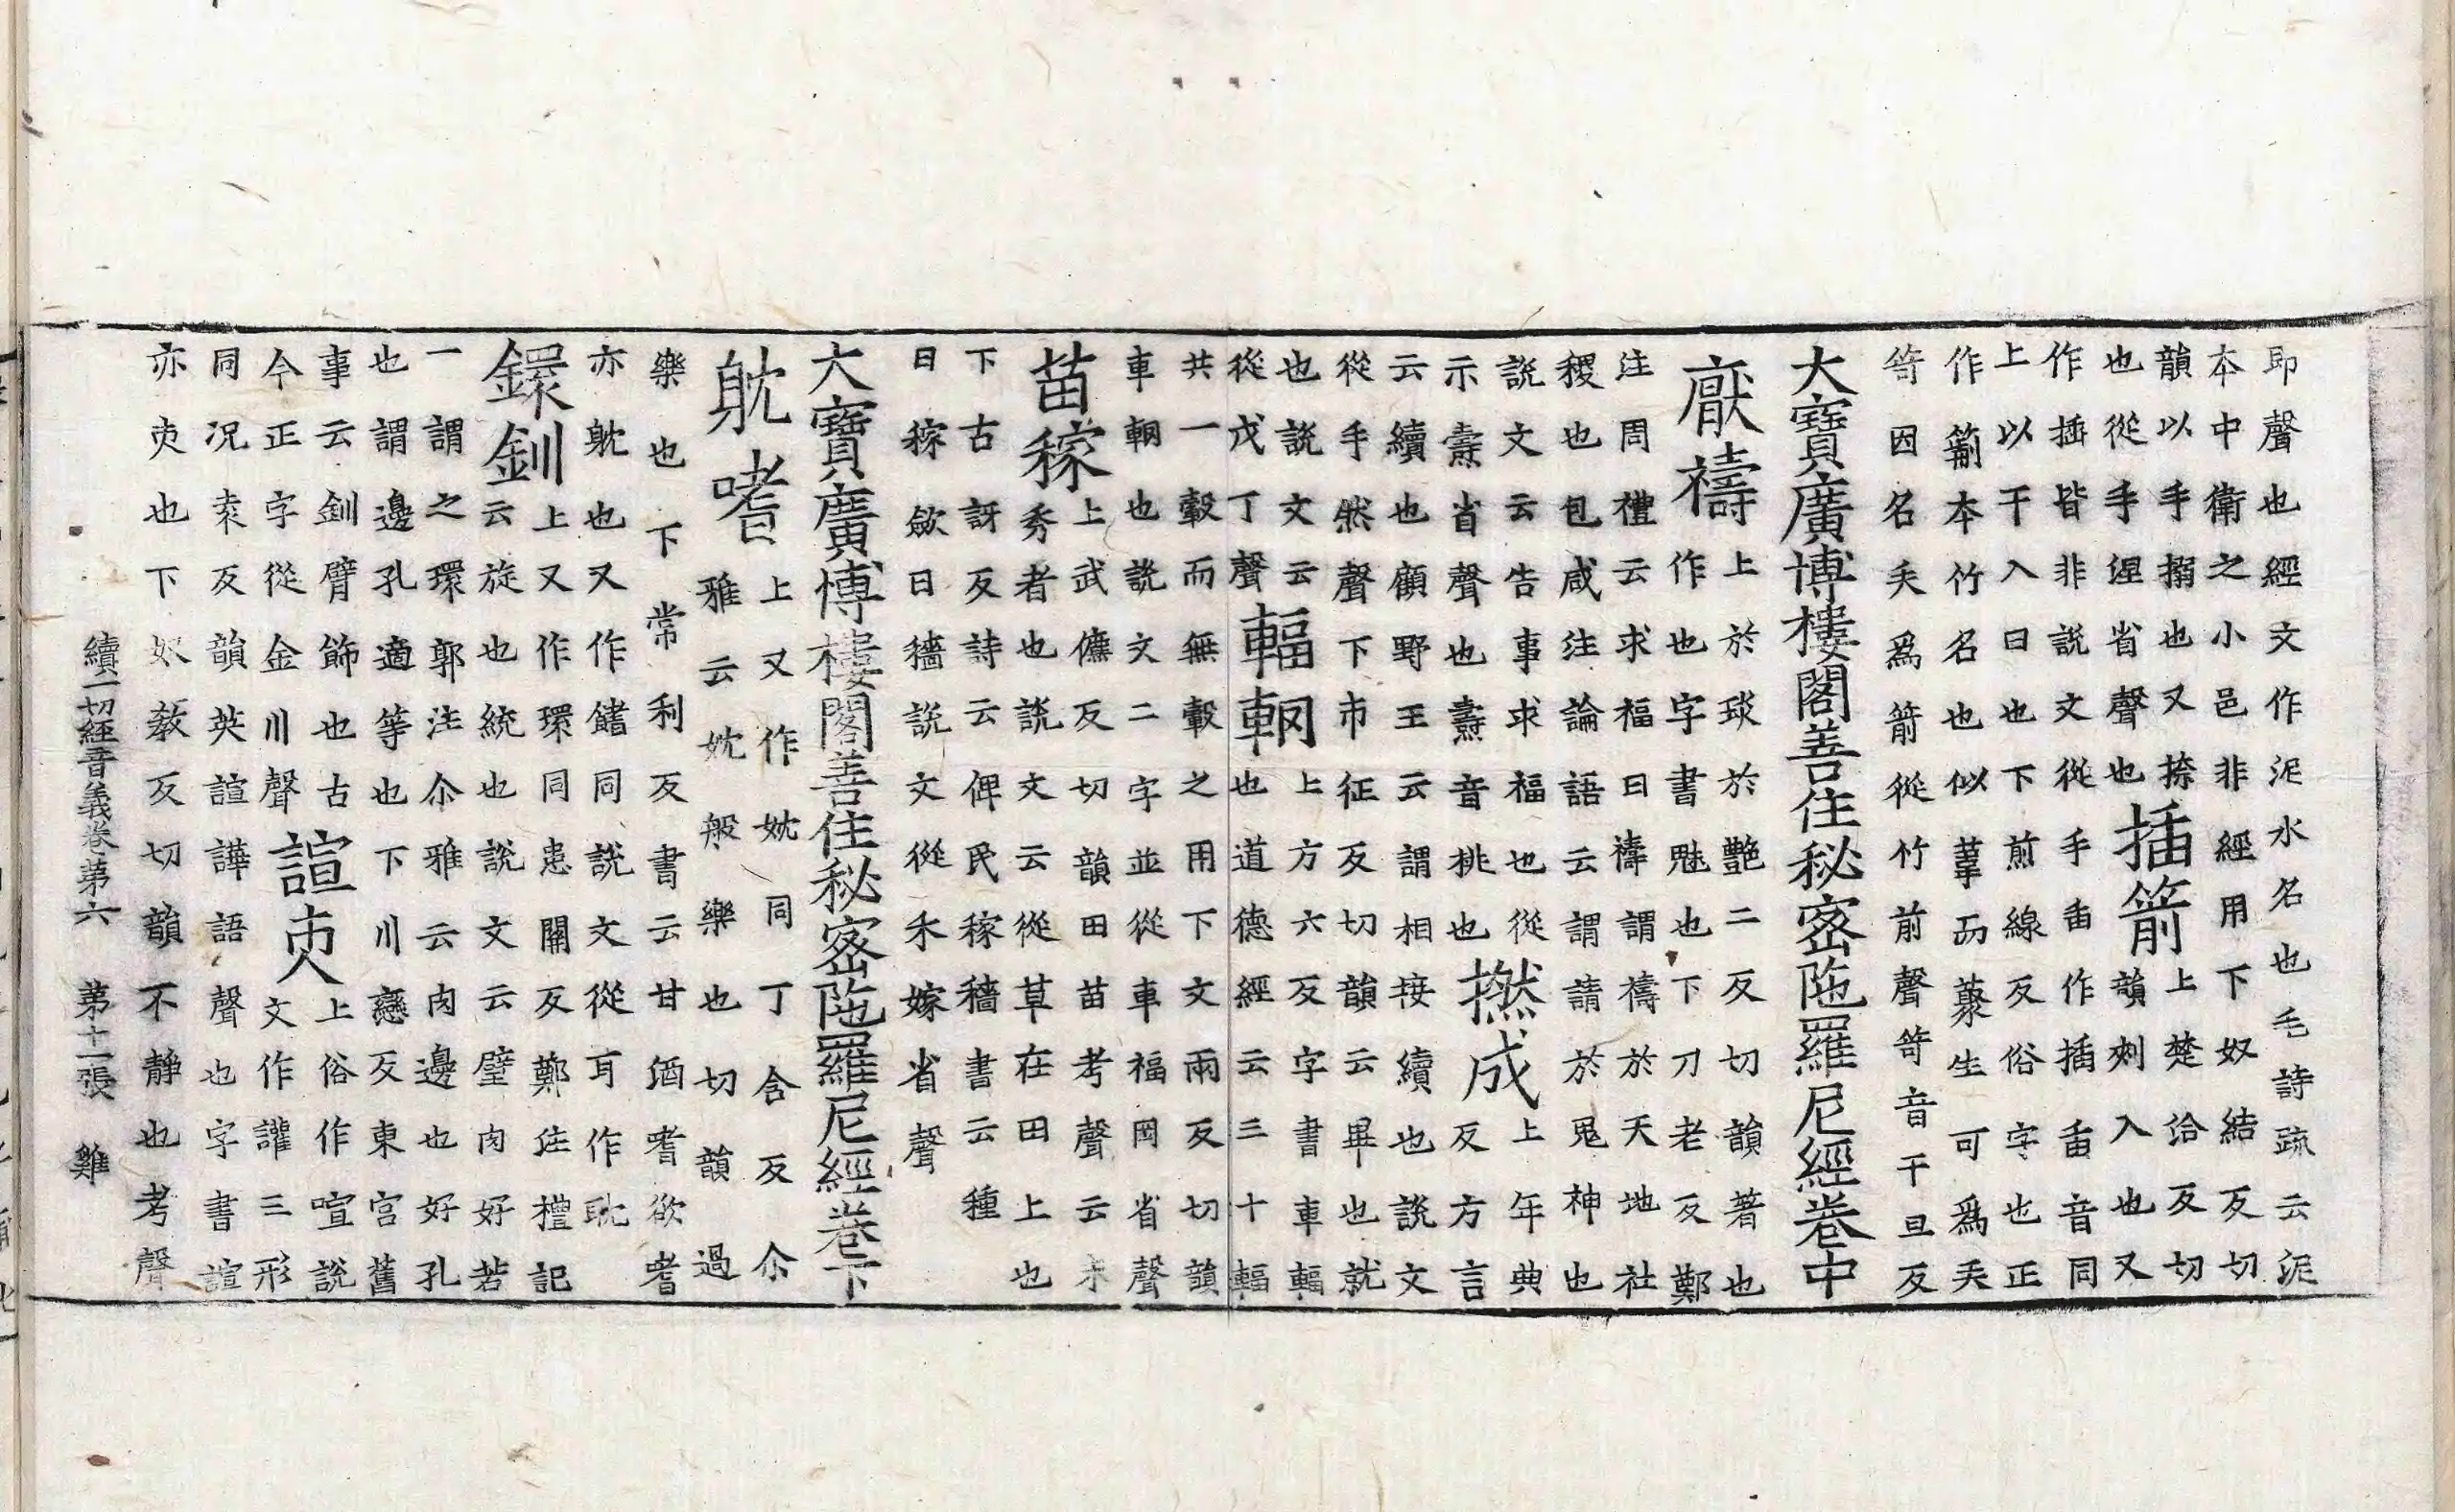 即聲也經文作泥水名也毛詩䟽云泥
本中衛之小邑非經用下奴結反切
韻以手搦也又捺
也從手涅省聲也
插箭
上楚洽反切
韻刾入也又
作挿皆非說文從手臿作插臿音同
上以干入曰也下煎線反俗字也正
作箭本竹名也似葦而藂生可為矢
笴因名矢為箭從竹前聲笴音干旦反
大寶廣博樓閣善住秘密陁羅尼經卷中
厭禱
上於琰於艷二反切韻著也
作也字書魅也下刀老反鄭
注周禮云求福曰禱謂禱於天地社
稷也包咸注論語云謂請於鬼神也
說文云告事求福也從
示燾省聲也燾音桃也
撚成
上年典
反方言
云續也顧野王云謂相接續也說文
從手然聲下市征反切韻云畢也就
也說文云
從戊丁聲
輻輞
上方六反字書車輻
也道德經云三十輻
共一轂而無轂之用下文兩反切韻
車輞也說文二字並從車福罔省聲
苗稼
上武儦反切韻田苗考聲云未
秀者也說文云從草在田上也
下古訝反詩云俾民稼穡書云種
曰稼斂曰穡說文從禾嫁省聲
大寶廣博樓閣善住秘密陁羅尼經卷下
躭嗜
上又作妉同丁含反尒
雅云妉般樂也切韻過
樂也下常利反書云甘酒嗜欲嗜
亦躭也又作饎同說文從耳作耽
鐶釧
上又作環同患關反鄭注禮記
云旋也統也說文云璧肉好若
一謂之環郭注尒雅云肉邊也好孔
也謂邊孔適等也下川戀反東宮舊
事云釧臂飾也古
今正字從金川聲
諠㕻
上俗作喧說
文作讙三形
同況袁反韻英諠譁語聲也字書諠
亦㕻也下奴教反切韻不靜也考聲
續一切經音義卷第六 第十一張 雞